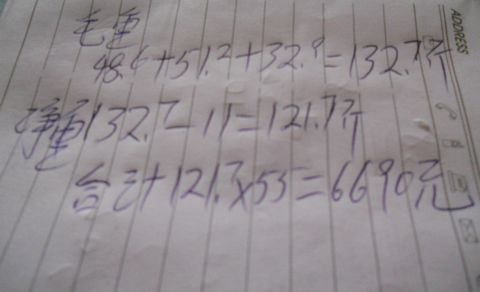 毛重
48.6+51.2+32.9=132.7斤
净重132.7-11=121.7斤
合计121.7x55=6690元
ADDRESS